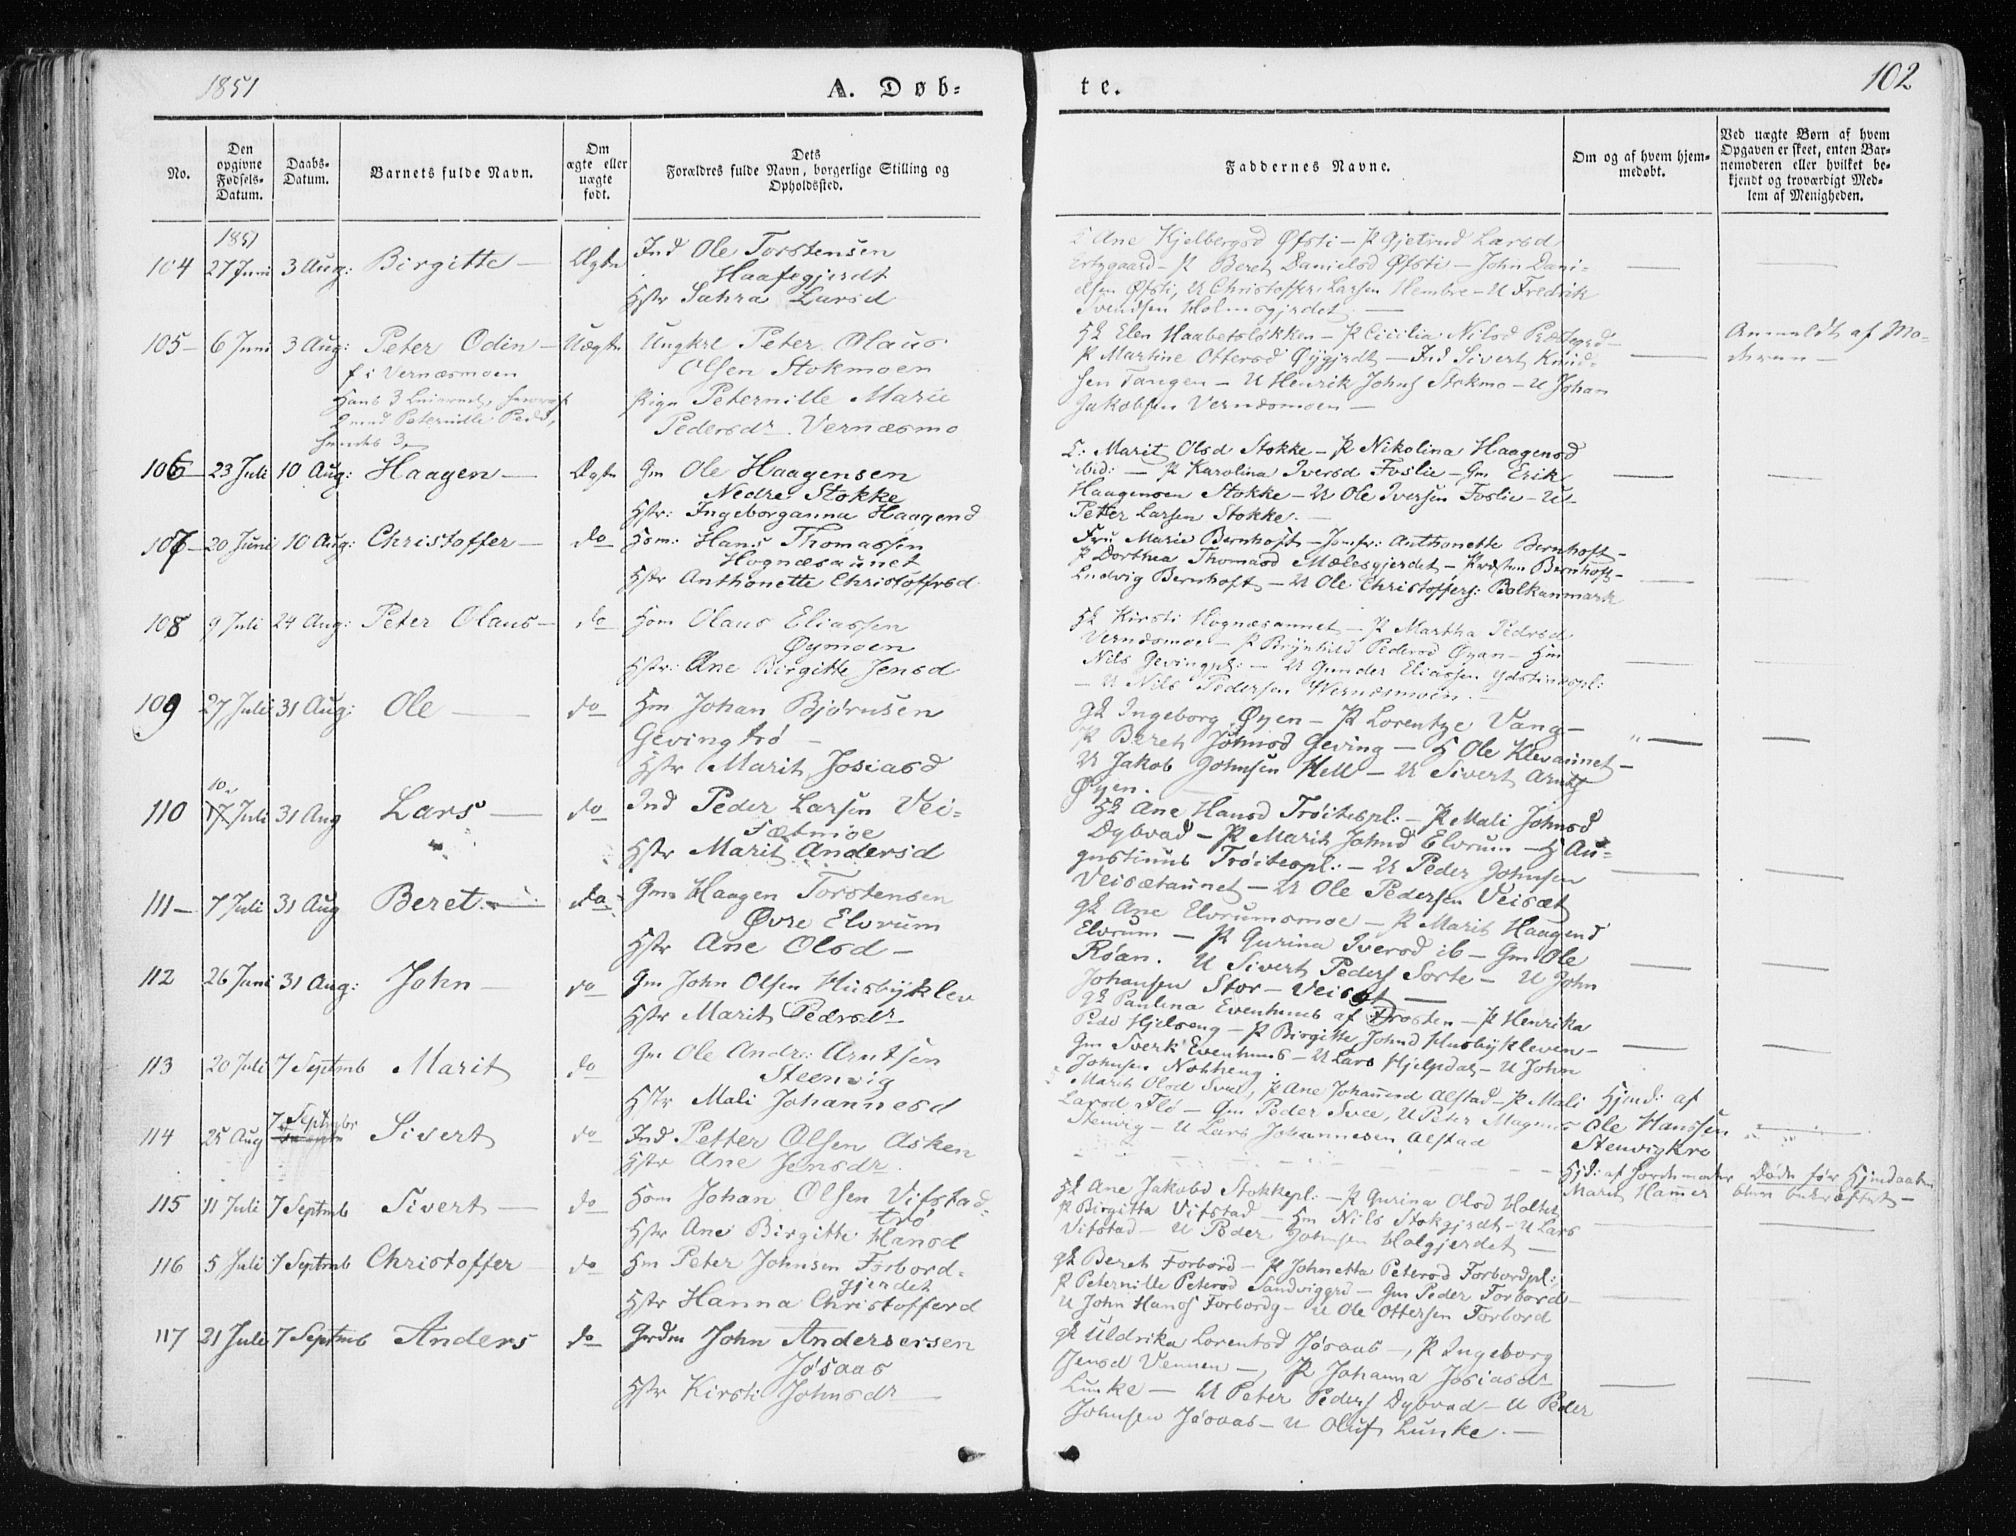 1851
A. Døb-
te.
102
No.
Den opgivne Fødsels-Datum.
Daabs-Datum.
Barnets fulde Navn.
Om ægte eller uægte født.
Dets Forældres fulde Navn, borgerlige Stilling og Opholdssted.
Faddernes Navne.
Om og af hvem hjem-medøbt.
Ved uægte Børn af hvem Opgaven er skeet, enten Bar-nemoderen eller hvilket be-kjendt og troværdigt Med-lem af Menigheden.
1851
104 27 Juni 3 Aug: Birgitte — Ægte Ind Ole Torstensen
Haafegjerdt
Hstr Sahra Larsd
Ane Kjelbergsd Øfsti — P Gjetrud Larsd
Ertzgaard — P Beret Danielsd Øfsti — John Dani-
elsen Øfsti, U Christoffer Larsen Hembre — U Fredrik
Svendsen Holmsgjerdet —
105 — 6 Juni 3 Aug: Peter Odin — Uægte Ungkrl Peter Olaus
Olsen Stokmoen
f i Vernæsmoen
Pige Peternille Marie
Pedersdr. Vernæsmo
Hans 3
Peternille Ped,
hendes 3
Elen Haabetsløkken — P Cicilia Nilsd
P Martine Ottersd Øygjerdt — Ind Sivert Knud-
sen Tangen — U Henrik Johns Stokmo — U Johan
Jakobsen Vernæsmoen —
Anmeldt af Mo-
deren —
106 — 23 Juli 10 Aug: Haagen — Ægte Gm Ole Haagensen
Nedre Stokke
Hstr: Ingeborganna Haagend
Marit Olsd Stokke — P Nikolina Haagensd
ibid: — P Karolina Iversd Foslie — Gm Erik
Haagensen Stokke — U Ole Iversen Foslie — U
Petter Larsen Stokke. —
107 — 20 Juni 10 Aug: Christoffer — do Hom: Hans Thomassen
Hognæsaunet
Hstr Anthonette Christoffersd
Fru Marie Bernhoft — Jomfr: Anthonette Bernhoft —
P Dorthea Thomasd Mælesgjerdet — Bernhoft —
Ludvig Bernhoft — U Ole Christoffers: Balkanmark
108 9 Juli 24 Aug: Peter Olaus — do Hom Olaus Eliassen
Øymoen
Hstr: Ane Birgitte Jensd
Kirsti Hognæsaunet — P Martha Pedersd
Vernæsmoe — P Brynhild Pedersd Øyan — Hm
Nils Gevingpl: — U Gunder Eliassen Ydstinespl:
— U Nils Pedersen Wernæsmoen. —
109 27 Juli 31 Aug: Ole — do Hm Johan Bjørnsen
Gevingtrø —
Hstr Marit Josiasd
gk Ingeborg Øyen — P Lorentze Vang —
P Beret Johnsd Geving — H Ole Klevaunet —
U Jakob Johnsen Hell — U Sivert Arnts
Øyen.
10
110 17 Juli 31 Aug Lars — do Ind Peder Larsen Vei-
sætmoe
Hstr Marit Andersd
Ane Hansd Trøitespl: — P Mali Johnsd
Dybvad — P Marit Johnd Elvrum — H Au-
gustinus Trøitespl: — U Peder Johnsen
Veisætaunet — U Ole Pedersen Veisæt
111 — 7 Juli 31 Aug Beret — do Gm Haagen Torstensen
Øvre Elvrum
Hstr Ane Olsd —
gk Ane Elvrumsmoe — P Marit Haagend
Elvrum — P Gurina Iversd ib — Gm Ole
Røan. U Sivert Peders Sorte — U John
Johansen Stor — Veisæt —
112 26 Juni 31 Aug: John — do Gm John Olsen Husbyklev
Hstr Marit Pedrsdr —
gk Paulina Evenhuus af Frosten — P Henrika
Peds Hjelseng — P Birgitte Johnd Husbykleven —
Gm Sverk Evenhuus — U Lars Hjelpdal — U John
Johnsen Nøtheng.
113 20 Juli 7 Septmb Marit do Gm Ole Andr: Arntsen
Steenvig
Hstr Mali Johannesd
Marit Olsd Svee, P Ane Johannesd Alstad — P Mali
Larsd Flø — Gm Peder Svee, U Peter Magnus
Stenvig — U Lars Johannesen Alstad
Hjmd: af
Ole Hanssen
Stenvigkro
114 25 Aug 7 Septmbr Sivert do Ind Petter Olsen Asken
Hstr Ane Jensdr.
Hjd: af Jordemoder
Marit Hamer
Døde før Hjmdaaben
blev bekræftet —
115 11 Juli 7 Septmb Sivert — do Hom Johan Olsen Vifstad-
trø
Hstr Ane Birgitte Hansd
Ane Jakobd Stokkepl: — P Gurina Olsd Holtet
P Birgitta Vifstad — Hm Nils Stokgjerdt — U Lars
Vifstad — U Peder Johnsen Holgjerdet —
116 5 Juli 7 Septmb Christoffer do Hm Peter Johnsen Forbord-
gjerdet
Hstr Hanna Christofferd
gk Beret Forbord — P Johnetta Petersd Forbordpl:
P Peternille Petersd Sandviggrd — Gm Peder Forbord —
U John Hans Forbordg — U Ole Ottersen Forbord
117 21 Juli 7 Septmb Anders do Grdm John Andersersen
Jøsaas
Hstr Kirsti Johnsdr —
gk Uldrika Lorentsd Jøsaas —, P Ingeborg
Jensd Vennen —, P Johanna Josiasdr
Lunke — U Peter Peders Dybvad — U Peder
Johnsen Jøsaas — U Oluf Lunke. —